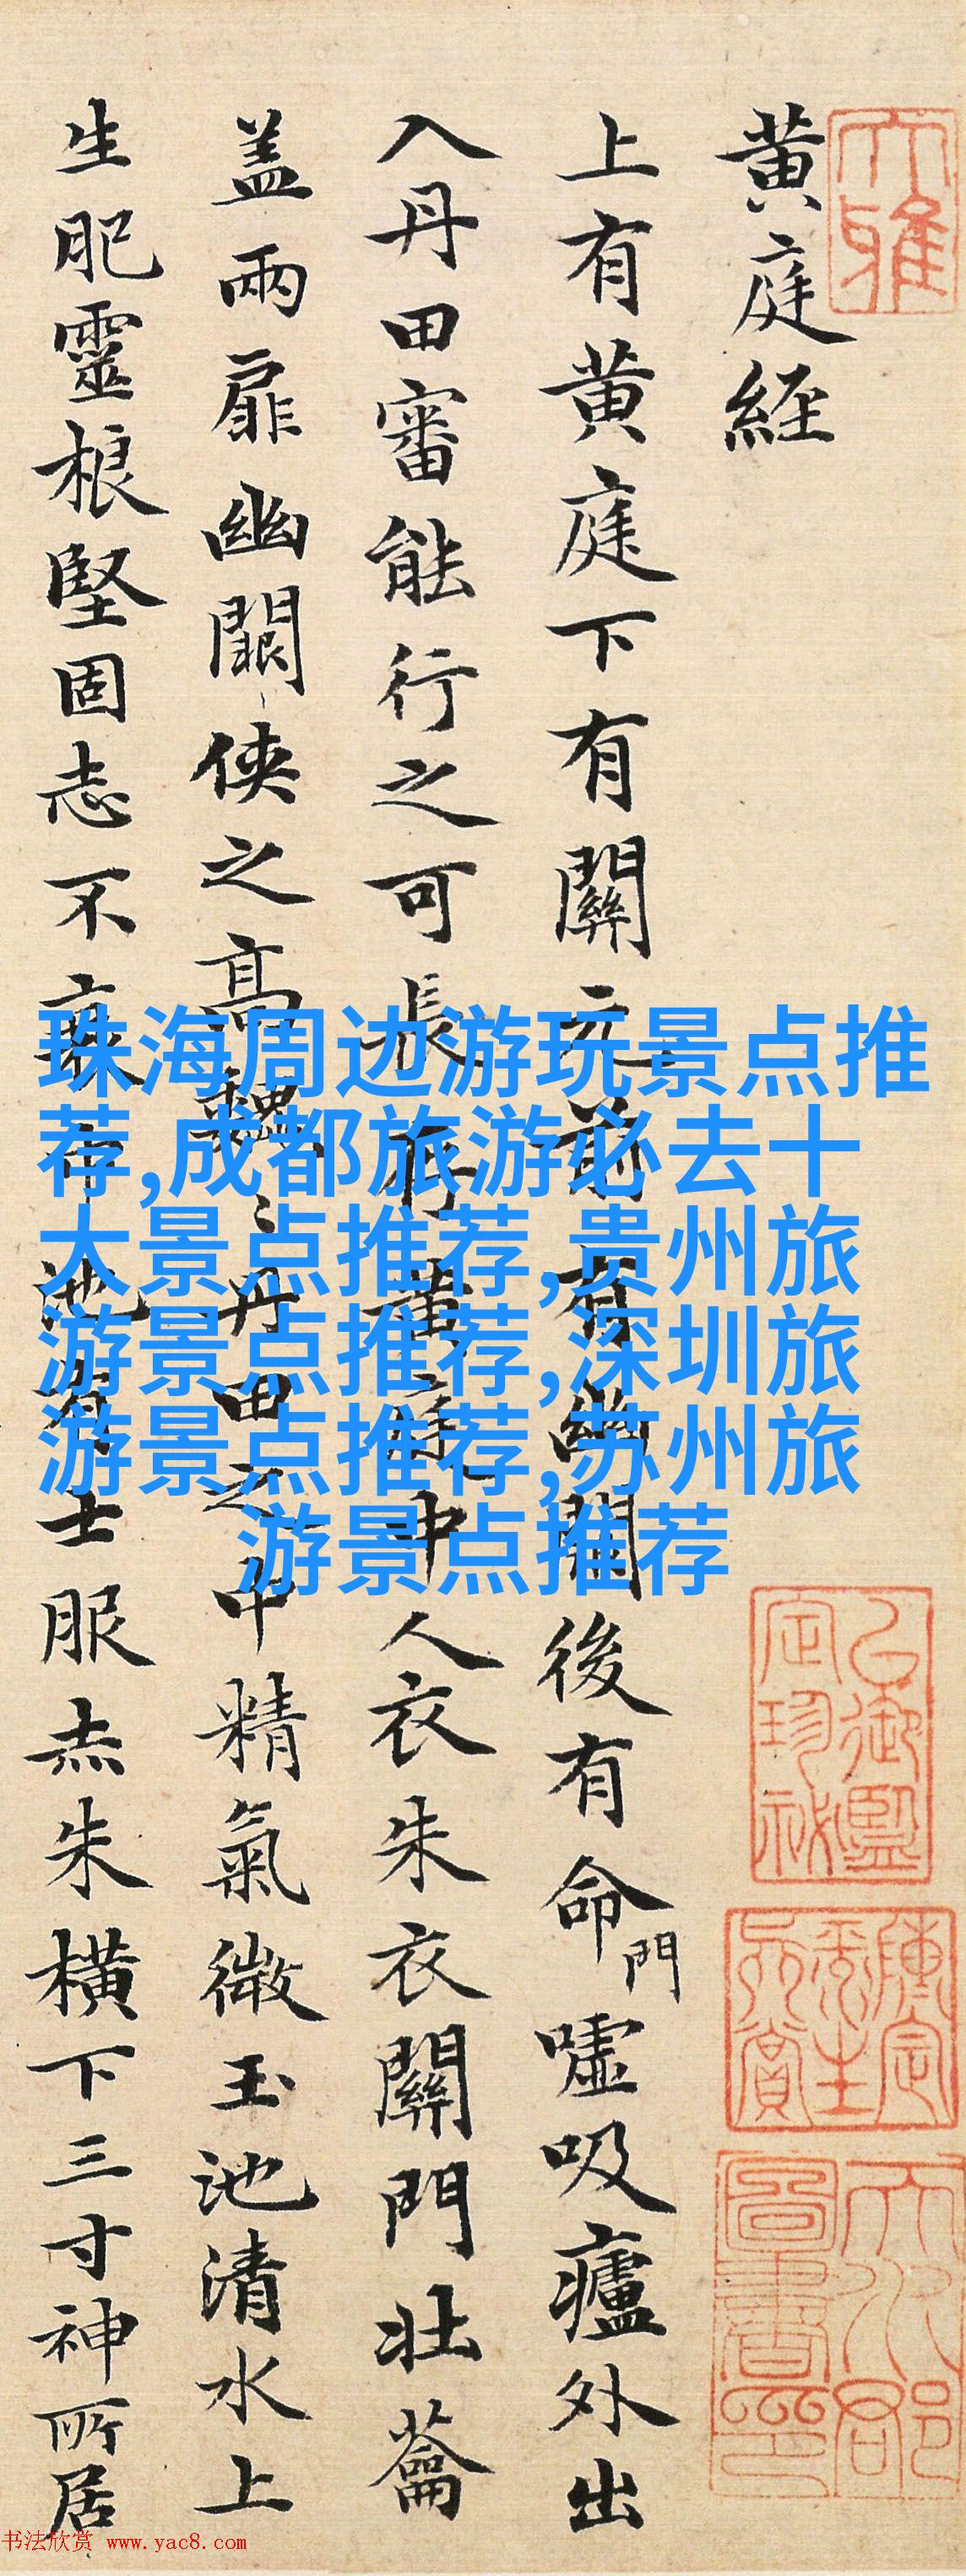 大雅
黄庭経
上有黄庭下有關元前有幽闕後有命門嘘吸廬外出
入丹田審能行之可長存黄庭中人衣朱衣關門壯蘥
盖兩扉幽闕俠之高巍〻丹田之中精氣微玉池清水上
生肥靈根堅固志不衰中池有士服赤朱横下三寸神所居
珠海周边游玩景点推
荐,成都旅游必去十
大景点推荐,贵州旅
游景点推荐,深圳旅
游景点推荐,苏州旅
游景点推荐
书法欣赏 www.yac8.com